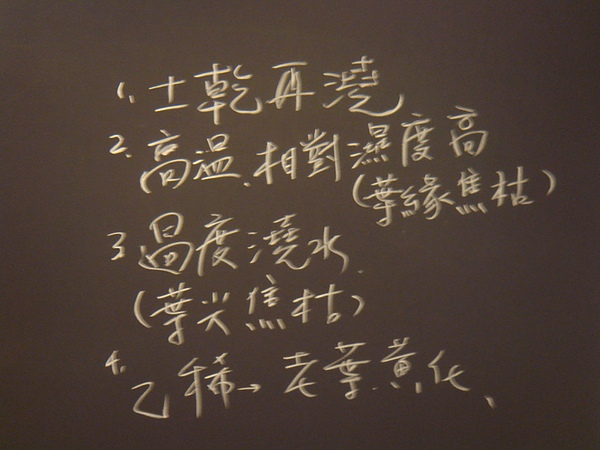 1. 土乾再澆
2. 高溫.相對濕度高
(葉緣焦枯)
3 過度澆水.
(葉尖焦枯)
4. 乙稀→老葉黃化、